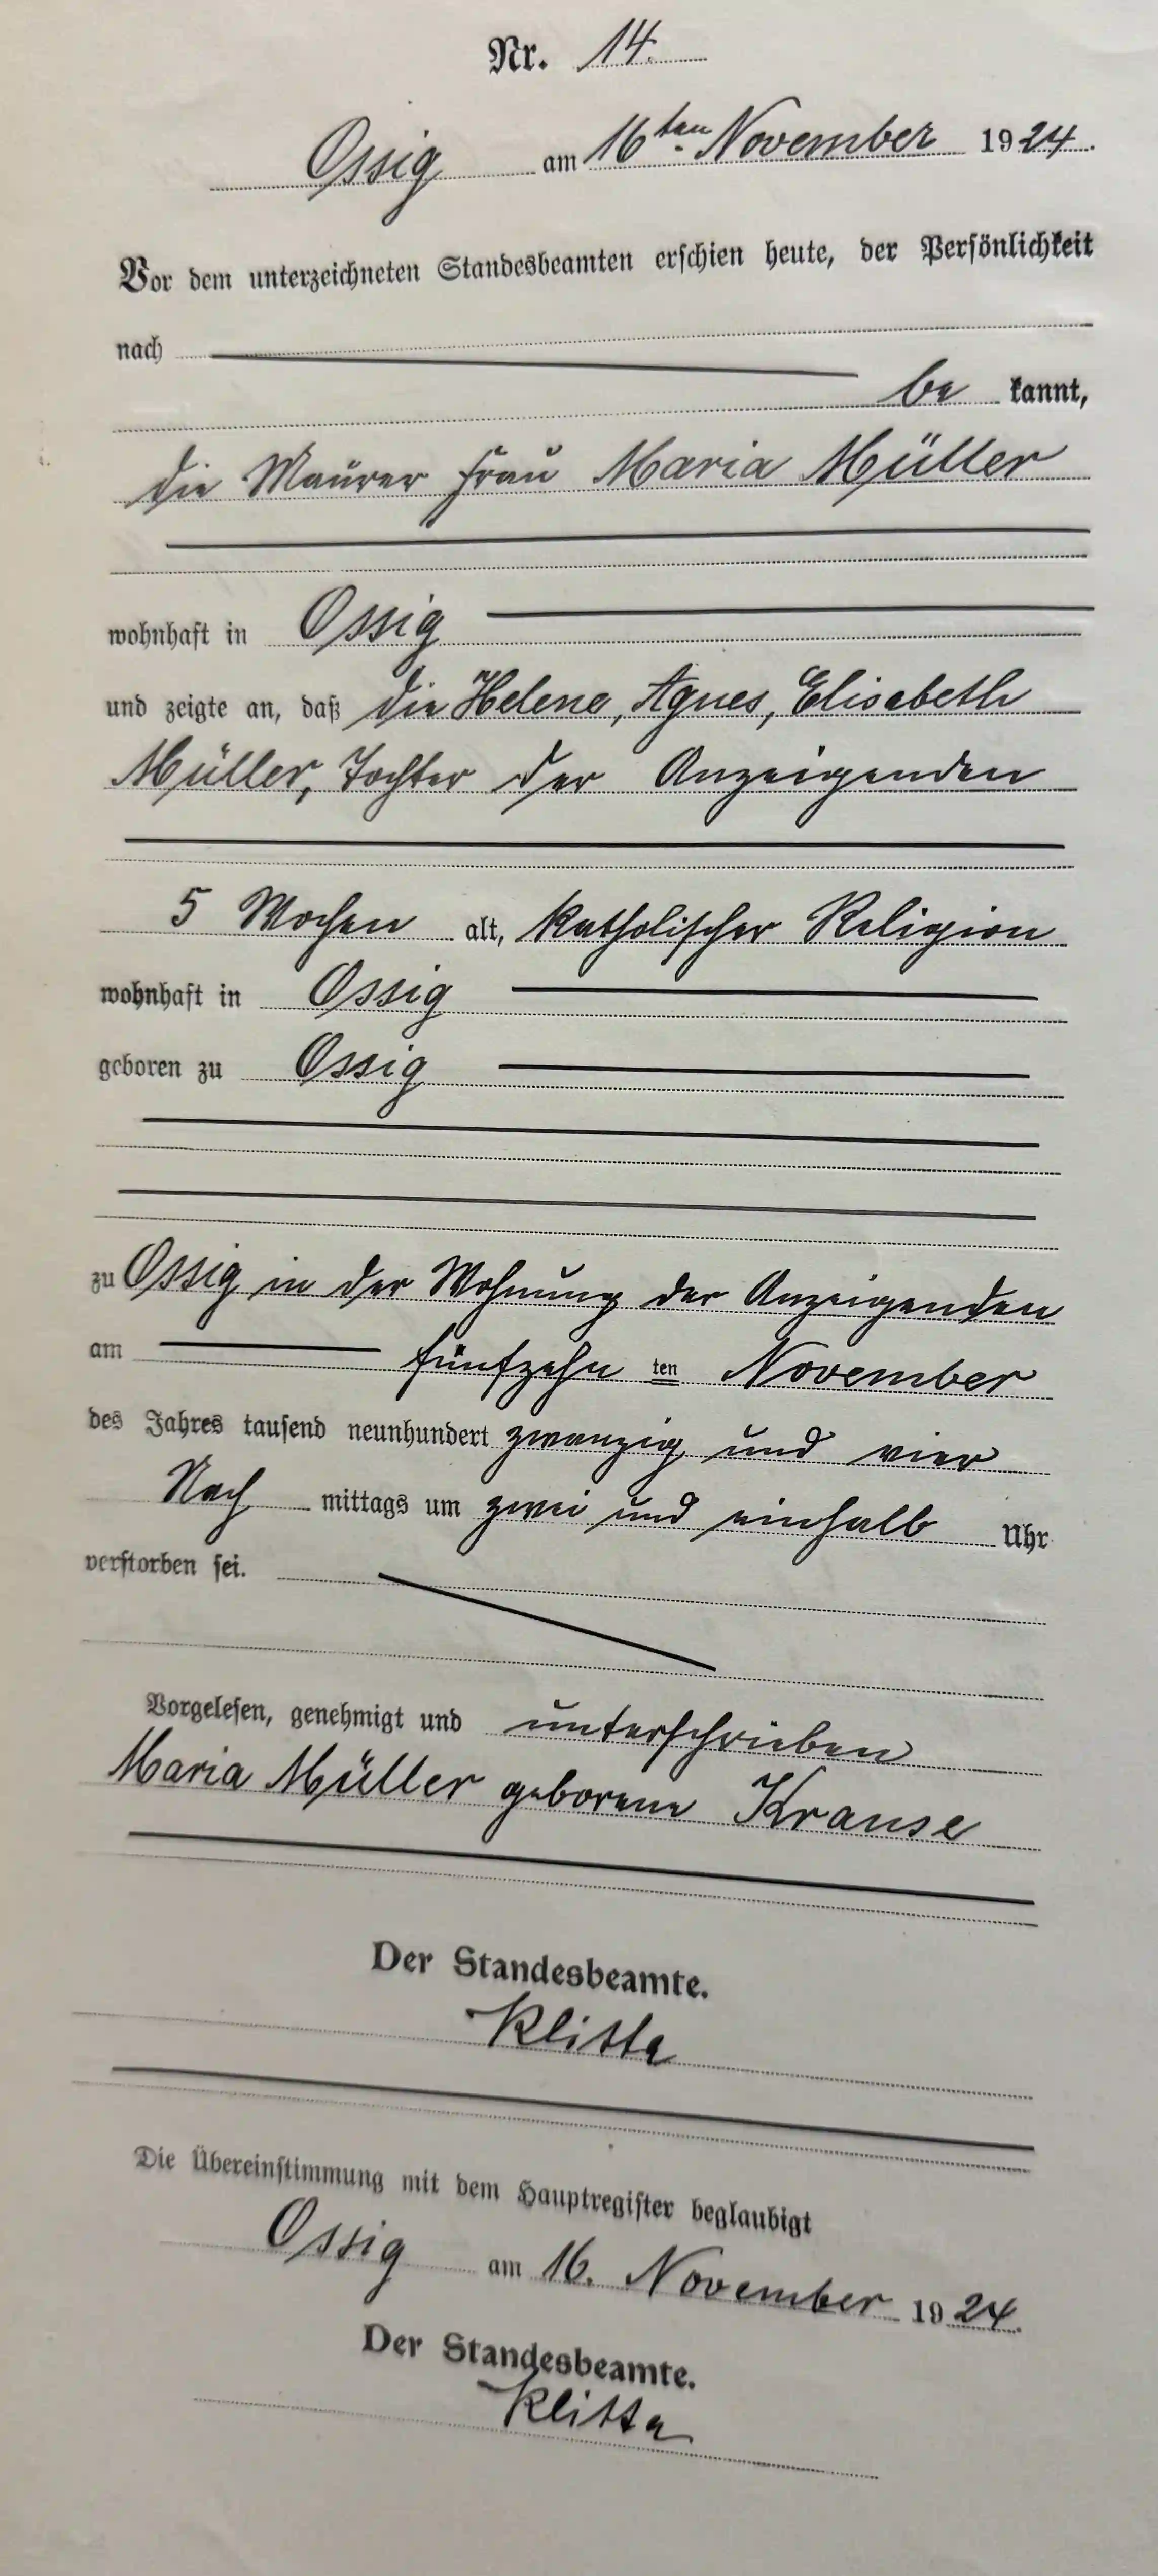 Nr. 14.
Ossig am 16ten November 1924.
Vor dem unterzeichneten Standesbeamten erschien heute, der Persönlichkeit
nach
be kannt,
die Maurer Frau Maria Müller
wohnhaft in Ossig
und zeigte an, daß die Helene, Agnes, Elisabeth
Müller, Tochter der Anzeigenden
5 Wochen alt, katholischer Religion
wohnhaft in Ossig
geboren zu Ossig
zu Ossig in der Wohnung der Anzeigenden
am fünfzehn ten November
des Jahres tausend neunhundert zwanzig und vier
Nach mittags um zwei und einhalb Uhr
verstorben sei.
Vorgelesen, genehmigt und unterschrieben
Maria Müller geborene Krause
Der Standesbeamte.
Klitta
Die Übereinstimmung mit dem Hauptregister beglaubigt
Ossig am 16. November 1924.
Der Standesbeamte.
Klitta